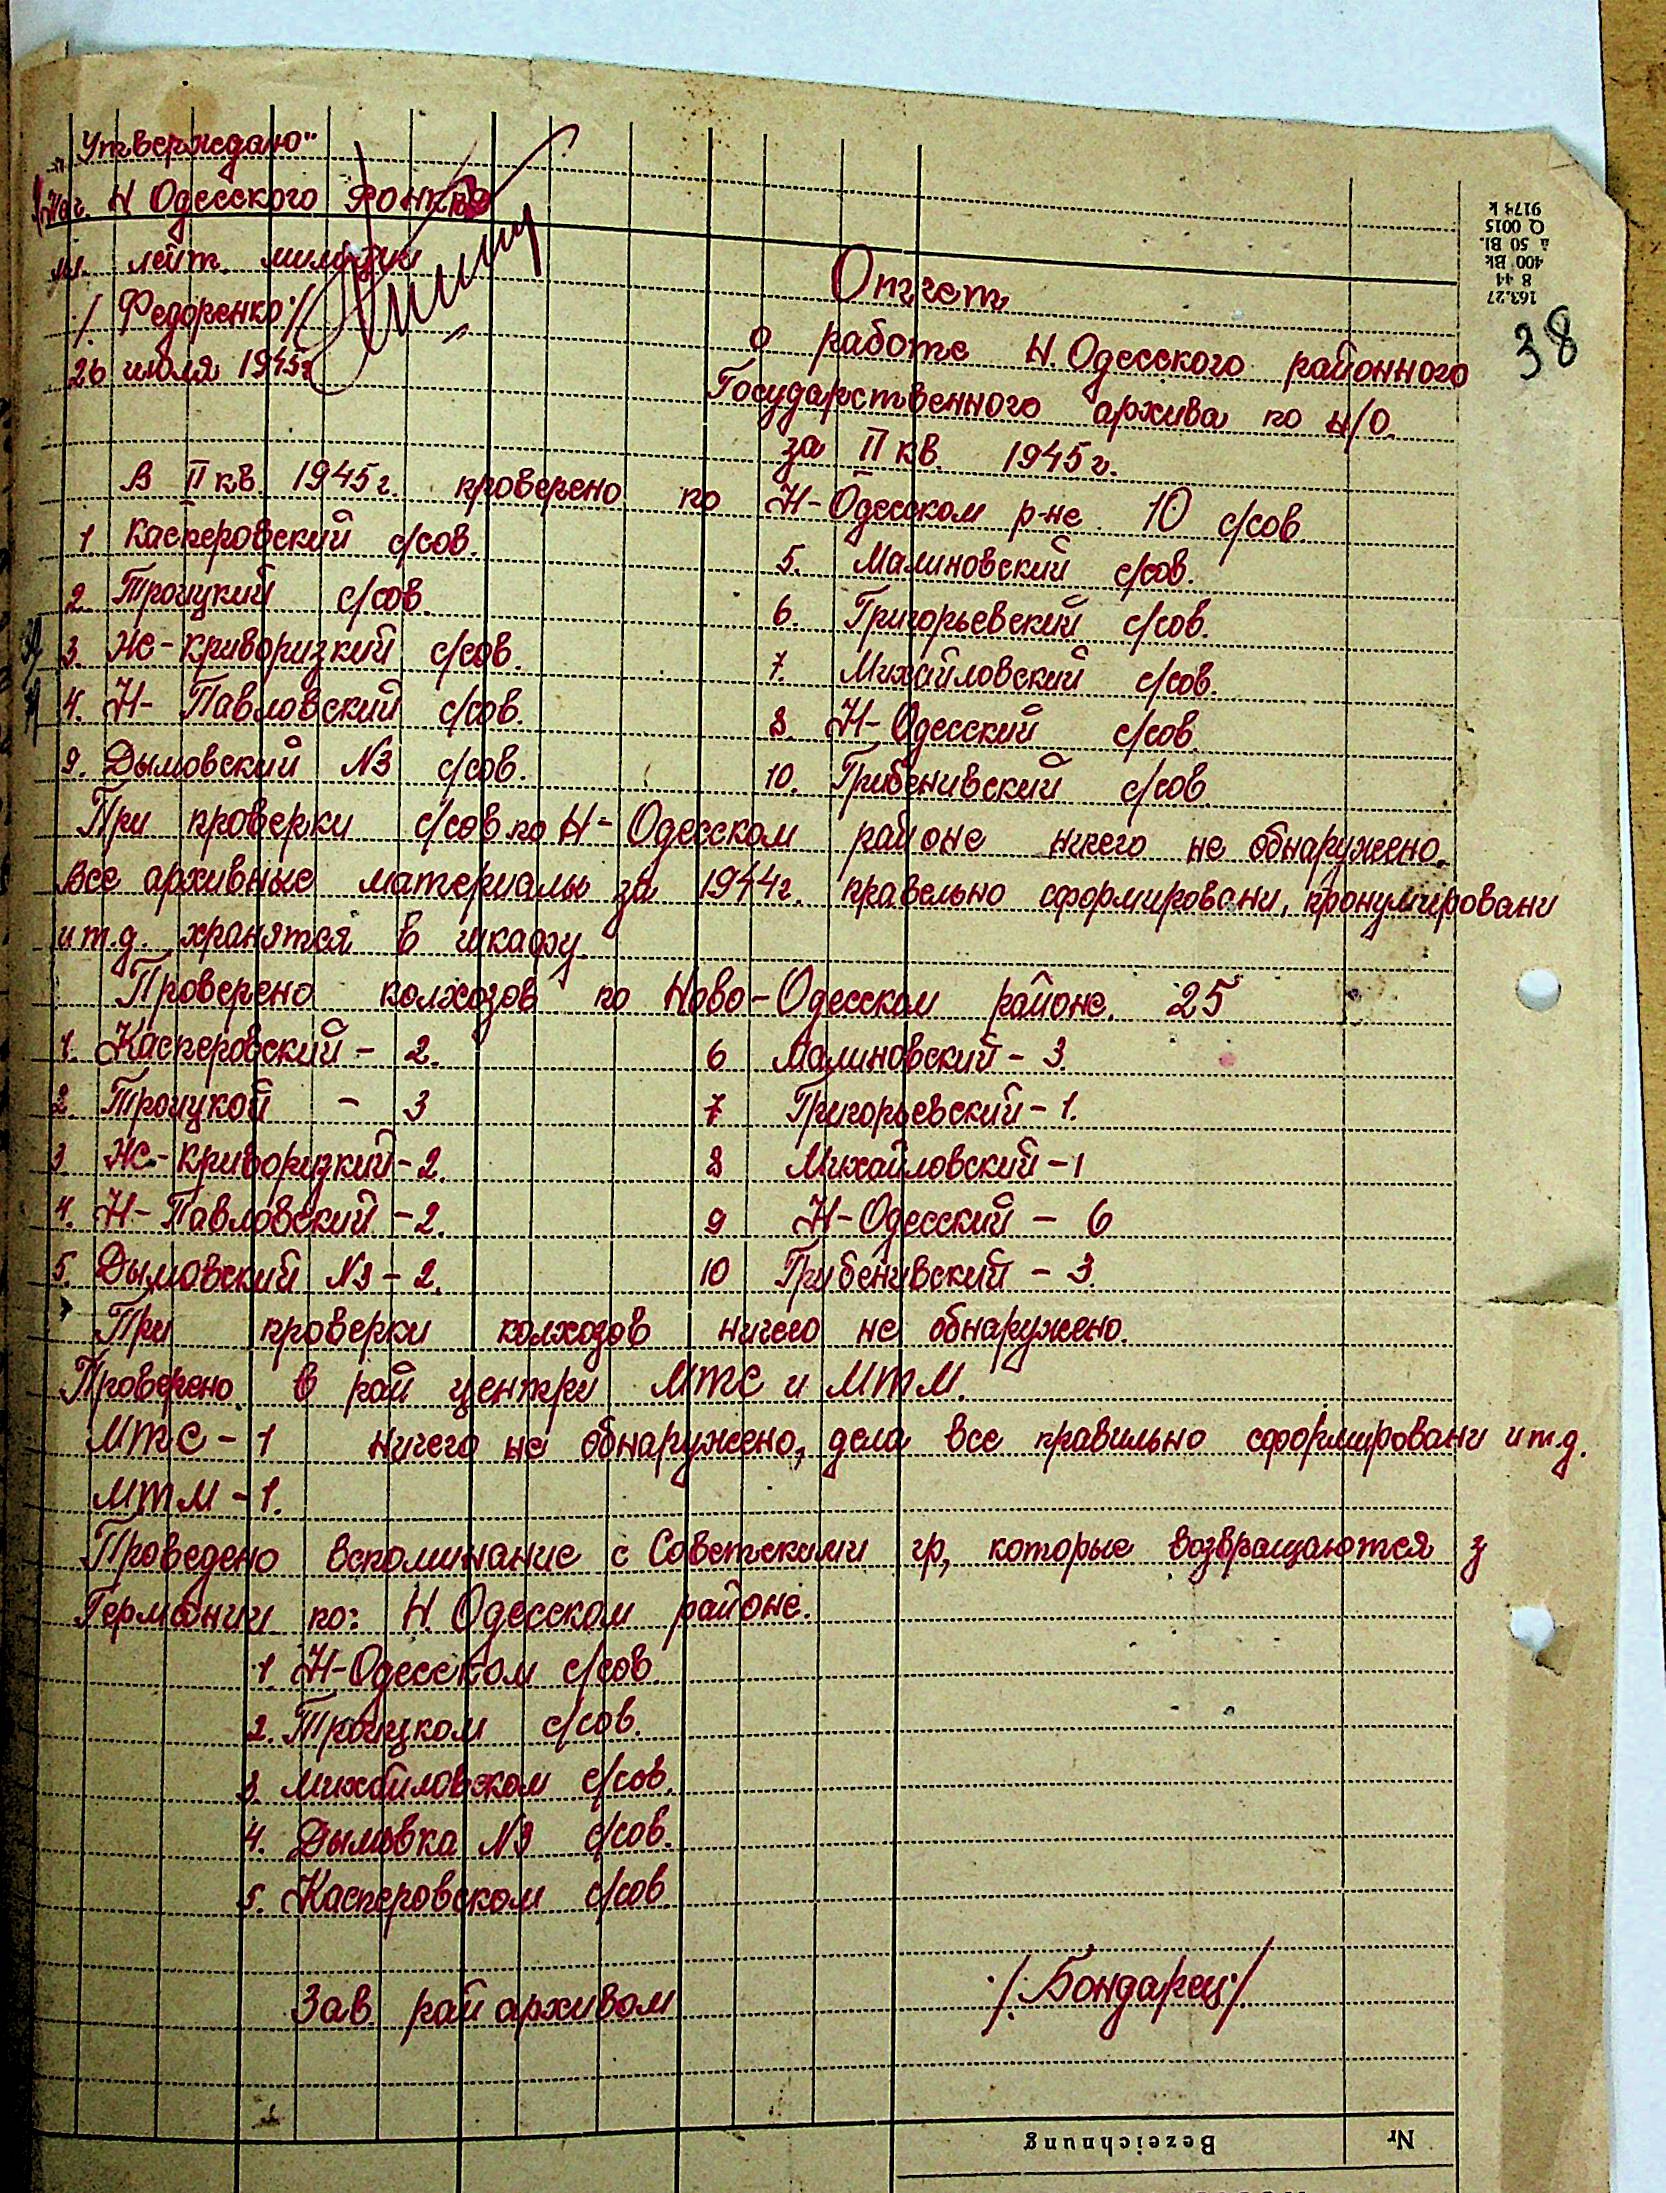 „Утверждаю"
Нач. Н Одесского РОНКВД
мл. лейт. милиции
/. Федоренко /
26 июля 1945г
163.27
8 44
400 Bk
à 50 Bl.
Q 0015
9174 k
38
Отчет
о работе Н. Одесского районного
Государственного архива по н/О.
за II кв. 1945 г.
В II кв. 1945 г. проверено по Н-Одесском р-не 10 с/сов.
1. Касперовский с/сов. 5. Малиновский с/сов.
2. Троицкий с/сов. 6. Григорьевский с/сов.
3. Нс-Криворизкий с/сов. 7. Михайловский с/сов.
4. Н- Павловский с/сов. 8. Н-Одесский с/сов.
9. Дымовский №3 с/сов. 10. Грибенивский с/сов
При проверки с/сов по Н- Одесском районе ничего не обнаружено.
Все архивные материалы за 1944г. правельно сформировани, пронумировани
и т.д. хранятся в шкафу.
Проверено колхозов по Ново-Одесском районе. 25
1. Касперовский - 2. 6 Малиновский - 3.
2. Троицкой - 3 7 Григорьевский - 1.
3 Нс-Криворизкий - 2. 8 Михайловский - 1
4. Н- Павловский - 2. 9 Н-Одесский - 6
5. Дымовский №3 - 2. 10 Грибенивский - 3.
При проверки колхозов ничего не обнаружено.
Проверено в рай центри МТС и МТМ.
МТС - 1 ничего не обнаружено, дела все правильно сформировани и т.д.
МТМ - 1.
Проведено вспоминание с Советскими гр, которые возвращаются з
Германии по: Н. Одесском районе.
1. Н-Одесском с/сов.
2. Троицком с/сов.
3. Михайловском с/сов.
4. Дымовка №3 с/сов.
5. Касперовском с/сов
Зав рай архивом /. Бондарец /.
Bezeichnung Nr